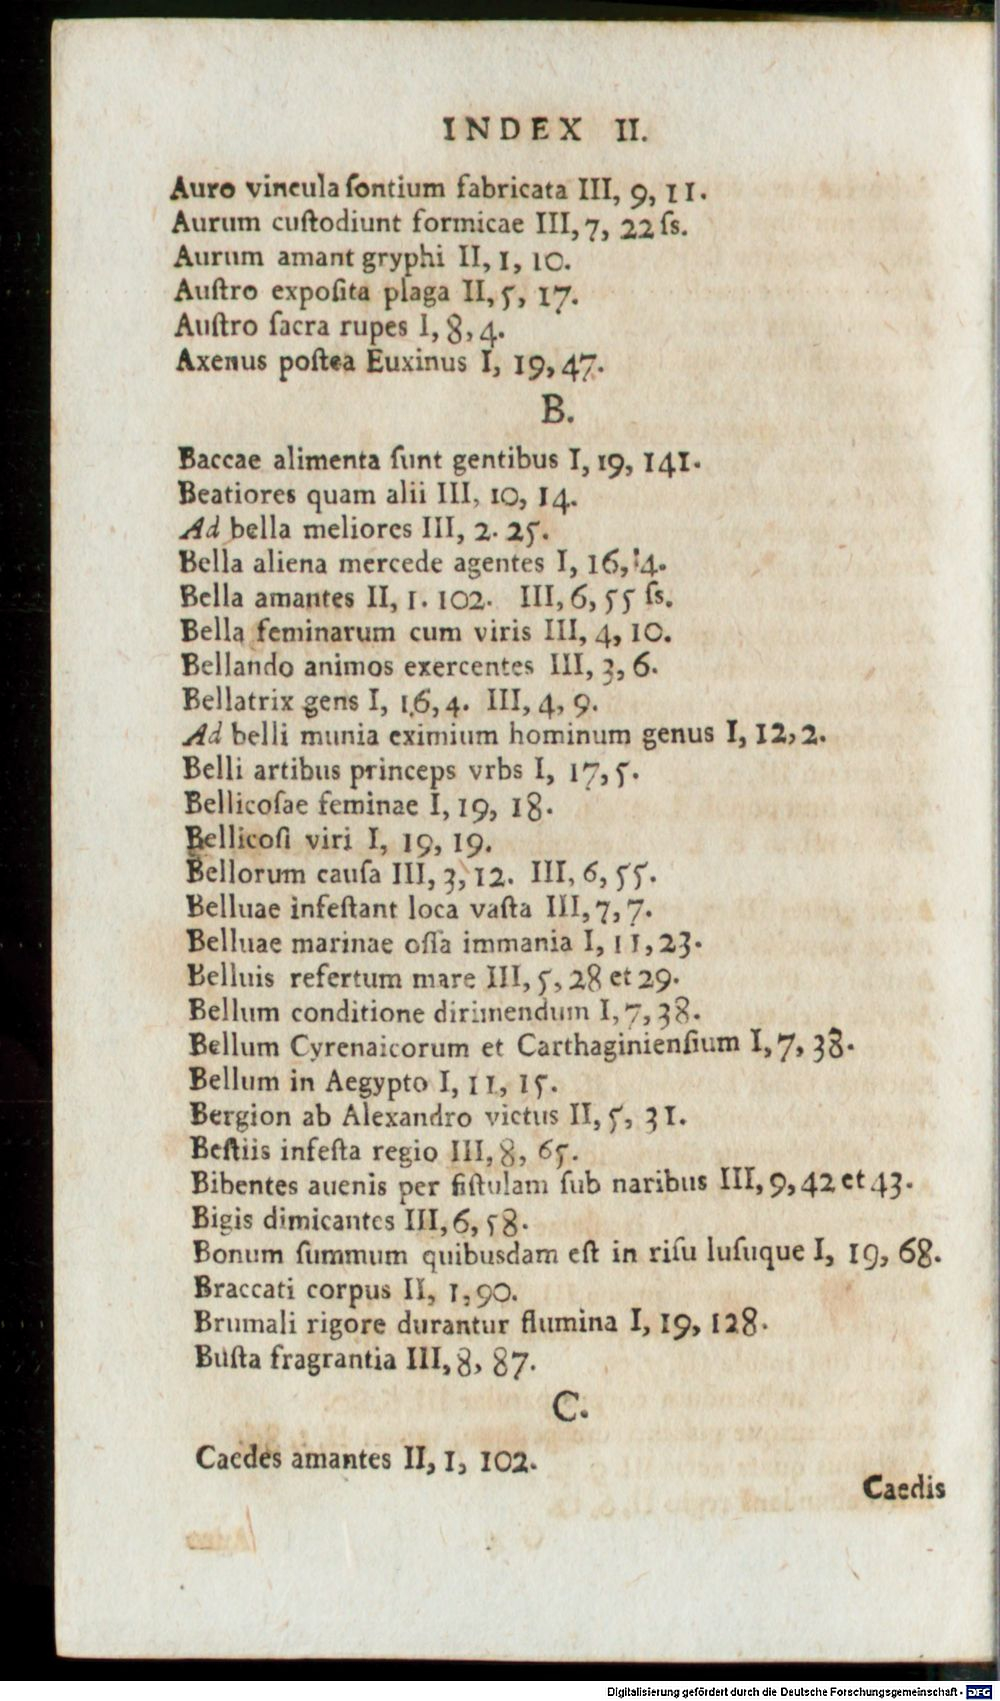 INDEX II.
Auro vincula ſontium fabricata III, 9, 11.
Aurum cuſtodiunt formicae III, 7, 22 ſs.
Aurum amant gryphi II, 1, 10.
Auſtro expoſita plaga II, 5, 17.
Auſtro ſacra rupes I, 8, 4.
Axenus poſtea Euxinus I, 19, 47.
B.
Baccae alimenta ſunt gentibus I, 19, 141.
Beatiores quam alii III, 10, 14.
Ad bella meliores III, 2. 25.
Bella aliena mercede agentes I, 16, 4.
Bella amantes II, 1. 102. III, 6, 55 ſs.
Bella feminarum cum viris III, 4, 10.
Bellando animos exercentes III, 3, 6.
Bellatrix gens I, 16, 4. III, 4, 9.
Ad belli munia eximium hominum genus I, 12, 2.
Belli artibus princeps vrbs I, 17, 5.
Bellicoſae feminae I, 19, 18.
Bellicoſi viri I, 19, 19.
Bellorum cauſa III, 3, 12. III, 6, 55.
Belluae infeſtant loca vaſta III, 7, 7.
Belluae marinae oſſa immania I, 11, 23.
Belluis refertum mare III, 5, 28 et 29.
Bellum conditione dirimendum I, 7, 38.
Bellum Cyrenaicorum et Carthaginienſium I, 7, 38.
Bellum in Aegypto I, 11, 15.
Bergion ab Alexandro victus II, 5, 31.
Beſtiis infeſta regio III, 8, 65.
Bibentes auenis per fiſtulam ſub naribus III, 9, 42 et 43.
Bigis dimicantes III, 6, 58.
Bonum ſummum quibusdam eſt in riſu luſuque I, 19, 68.
Braccati corpus II, 1, 90.
Brumali rigore durantur flumina I, 19, 128.
Buſta fragrantia III, 8, 87.
C.
Caedes amantes II, 1, 102.
Caedis
Digitalisierung gefördert durch die Deutsche Forschungsgemeinschaft - DFG